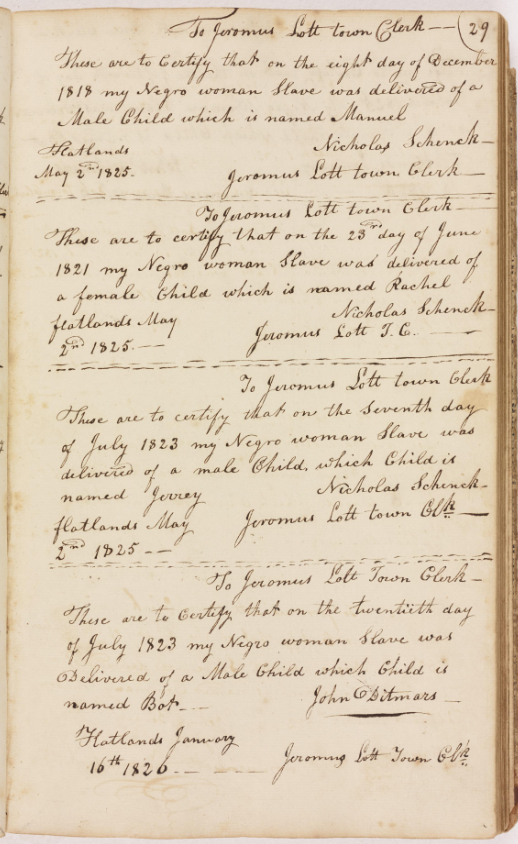 To Jeromus Lott town Clerk — 29
These are to Certify that on the eight day of December
1818 my Negro woman Slave was delivered of a
Male Child which is named Manuel
Nicholas Schenck
Flatlands
May 2nd 1825. Jeromus Lott town Clerk
To Jeromus Lott town Clerk
These are to certify that on the 23rd day of June
1821 my Negro woman Slave was delivered of
a female Child which is named Rachel
Nicholas Schenck
flatlands May
2nd 1825. — Jeromus Lott T. C.
To Jeromus Lott town Clerk
These are to certify that on the Seventh day
of July 1823 my Negro woman Slave was
delivered of a male Child, which Child is
named Jerrey Nicholas Schenck
flatlands May
2nd 1825 — Jeromus Lott town Clk
To Jeromus Lott Town Clerk
These are to Certify that on the twentieth day
of July 1823 my Negro woman Slave was
Delivered of a Male Child which Child is
named Bot John Ditmars
Flatlands January
16th 1826 — Jeromus Lott Town Clk